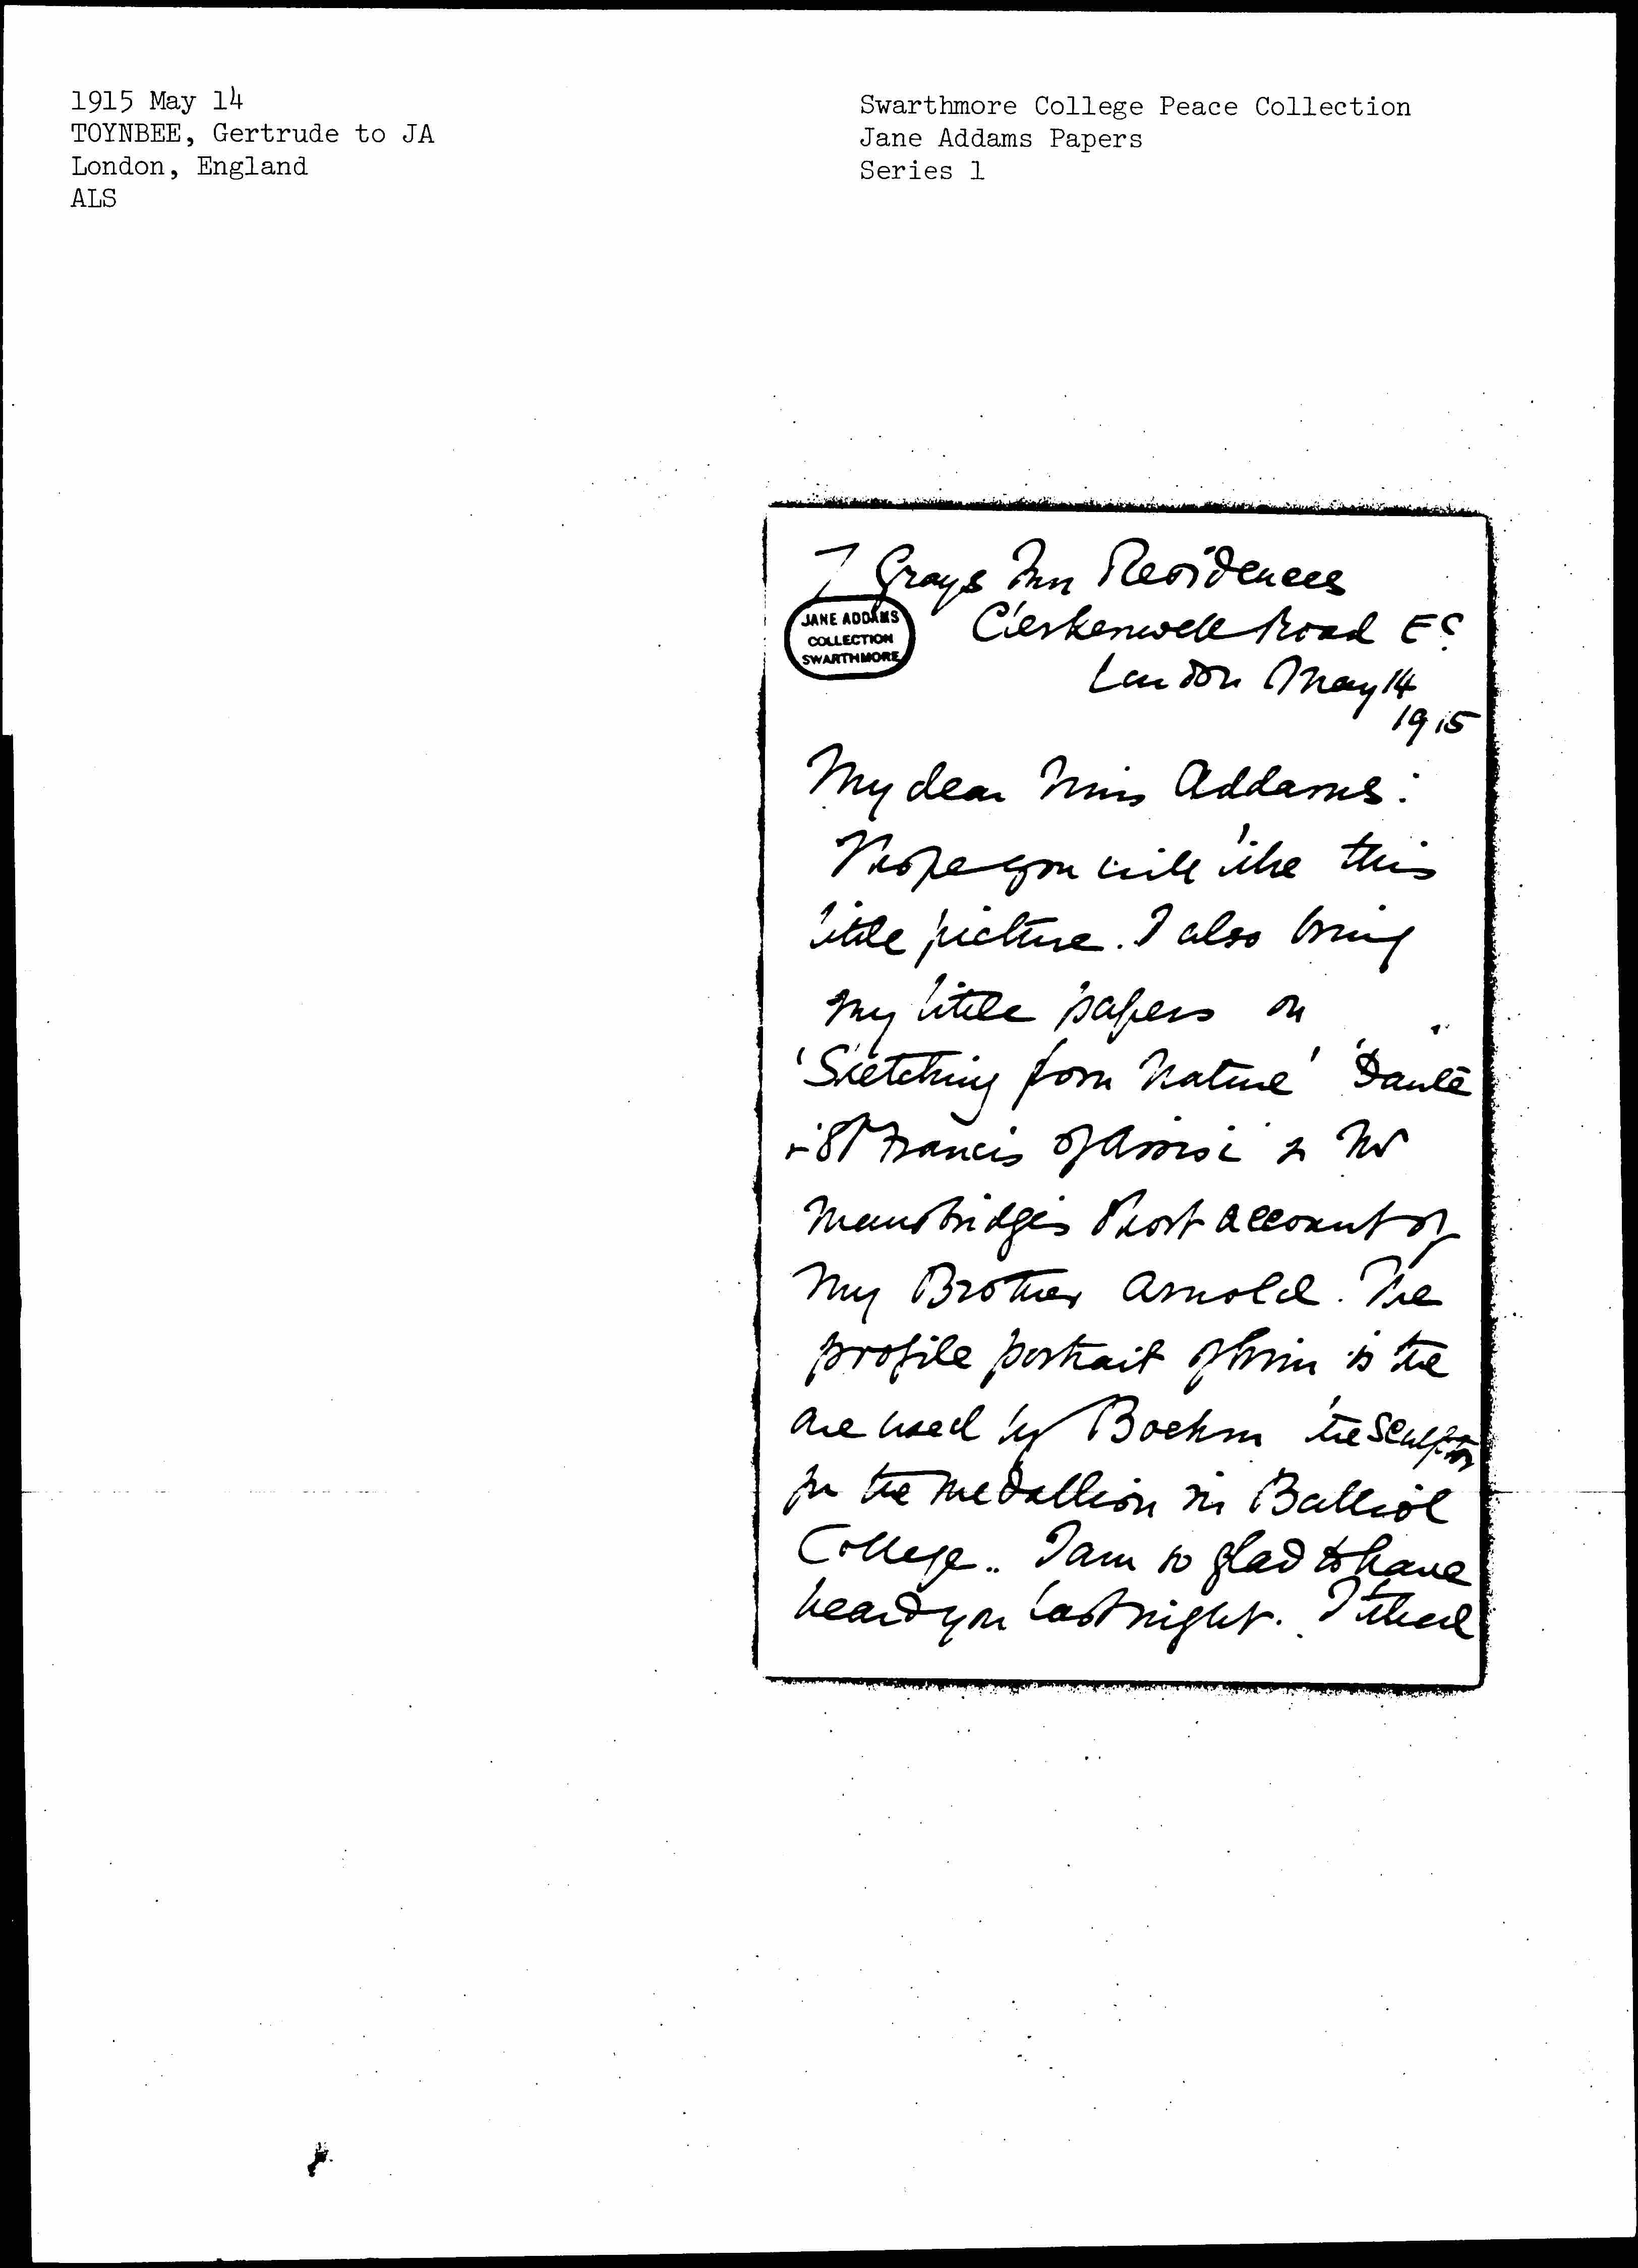 1915 May 14
TOYNBEE, Gertrude to JA
London, England
ALS
Swarthmore College Peace Collection
Jane Addams Papers
Series 1
7 Grays Inn Residences
JANE ADDAMS
COLLECTION
SWARTHMORE
Clerkenwell Road E C
London May 14
1915
My dear Miss Addams:
I hope you will like this
little picture. I also bring
my little papers on
'Sketching from Nature' 'Dante
& St Francis of Assisi' & Mr
Mansbridge's short account of
my Brother Arnold. The
profile portrait of him is the
one used by Boehm the Sculptor
for the medallion in Balliol
College. I am so glad to have
heard you last night. I